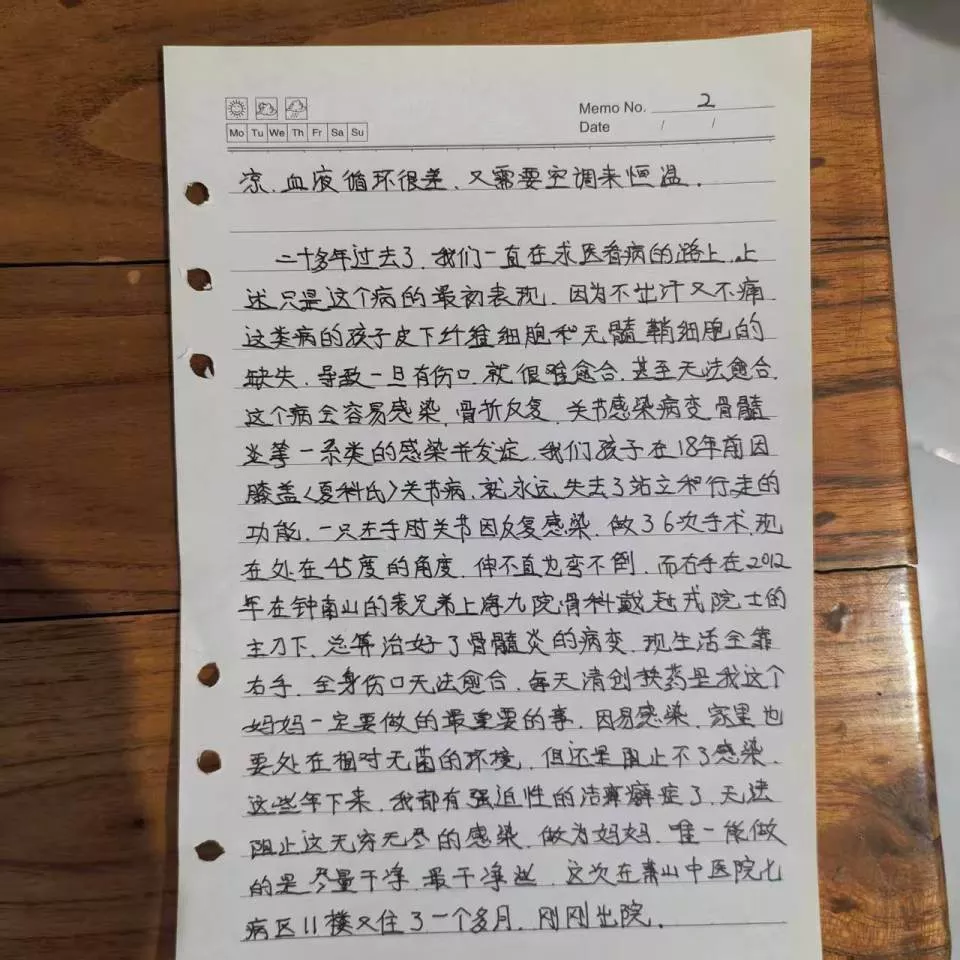 Memo No. 2
Mo Tu We Th Fr Sa Su
Date / /
凉、血液循环很差、又需要空调来恒温.
二十多年过去了、我们一直在求医看病的路上、上
述只是这个病的最初表现、因为不出汗又不痛
这类病的孩子皮下纤维细胞和无髓鞘细胞的
缺失、导致一旦有伤口、就很难愈合、甚至无法愈合、
这个病会容易感染、骨折反复、关节感染病变、骨髓
炎等一系类的感染并发症、我们孩子在18年前因
膝盖〈夏科氏〉关节病、就永远失去了站立和行走的
功能、一只左手肘关节因反复感染、做了6次手术、现
在处在45度的角度、伸不直也弯不倒、而右手在2012
年在钟南山的表兄弟上海九院骨科戴尅戎院士的
主刀下、总算治好了骨髓炎的病变、现生活全靠
右手、全身伤口无法愈合、每天清创换药是我这个
妈妈一定要做的最重要的事、因易感染、家里也
要处在相对无菌的环境、但还是阻止不了感染、
这些年下来、我都有强迫性的洁癖症了、无法
阻止这无穷无尽的感染、做为妈妈、唯一能做
的是尽量干净、最干净些、这次在萧山中医院七
病区11楼又住了一个多月、刚刚出院.